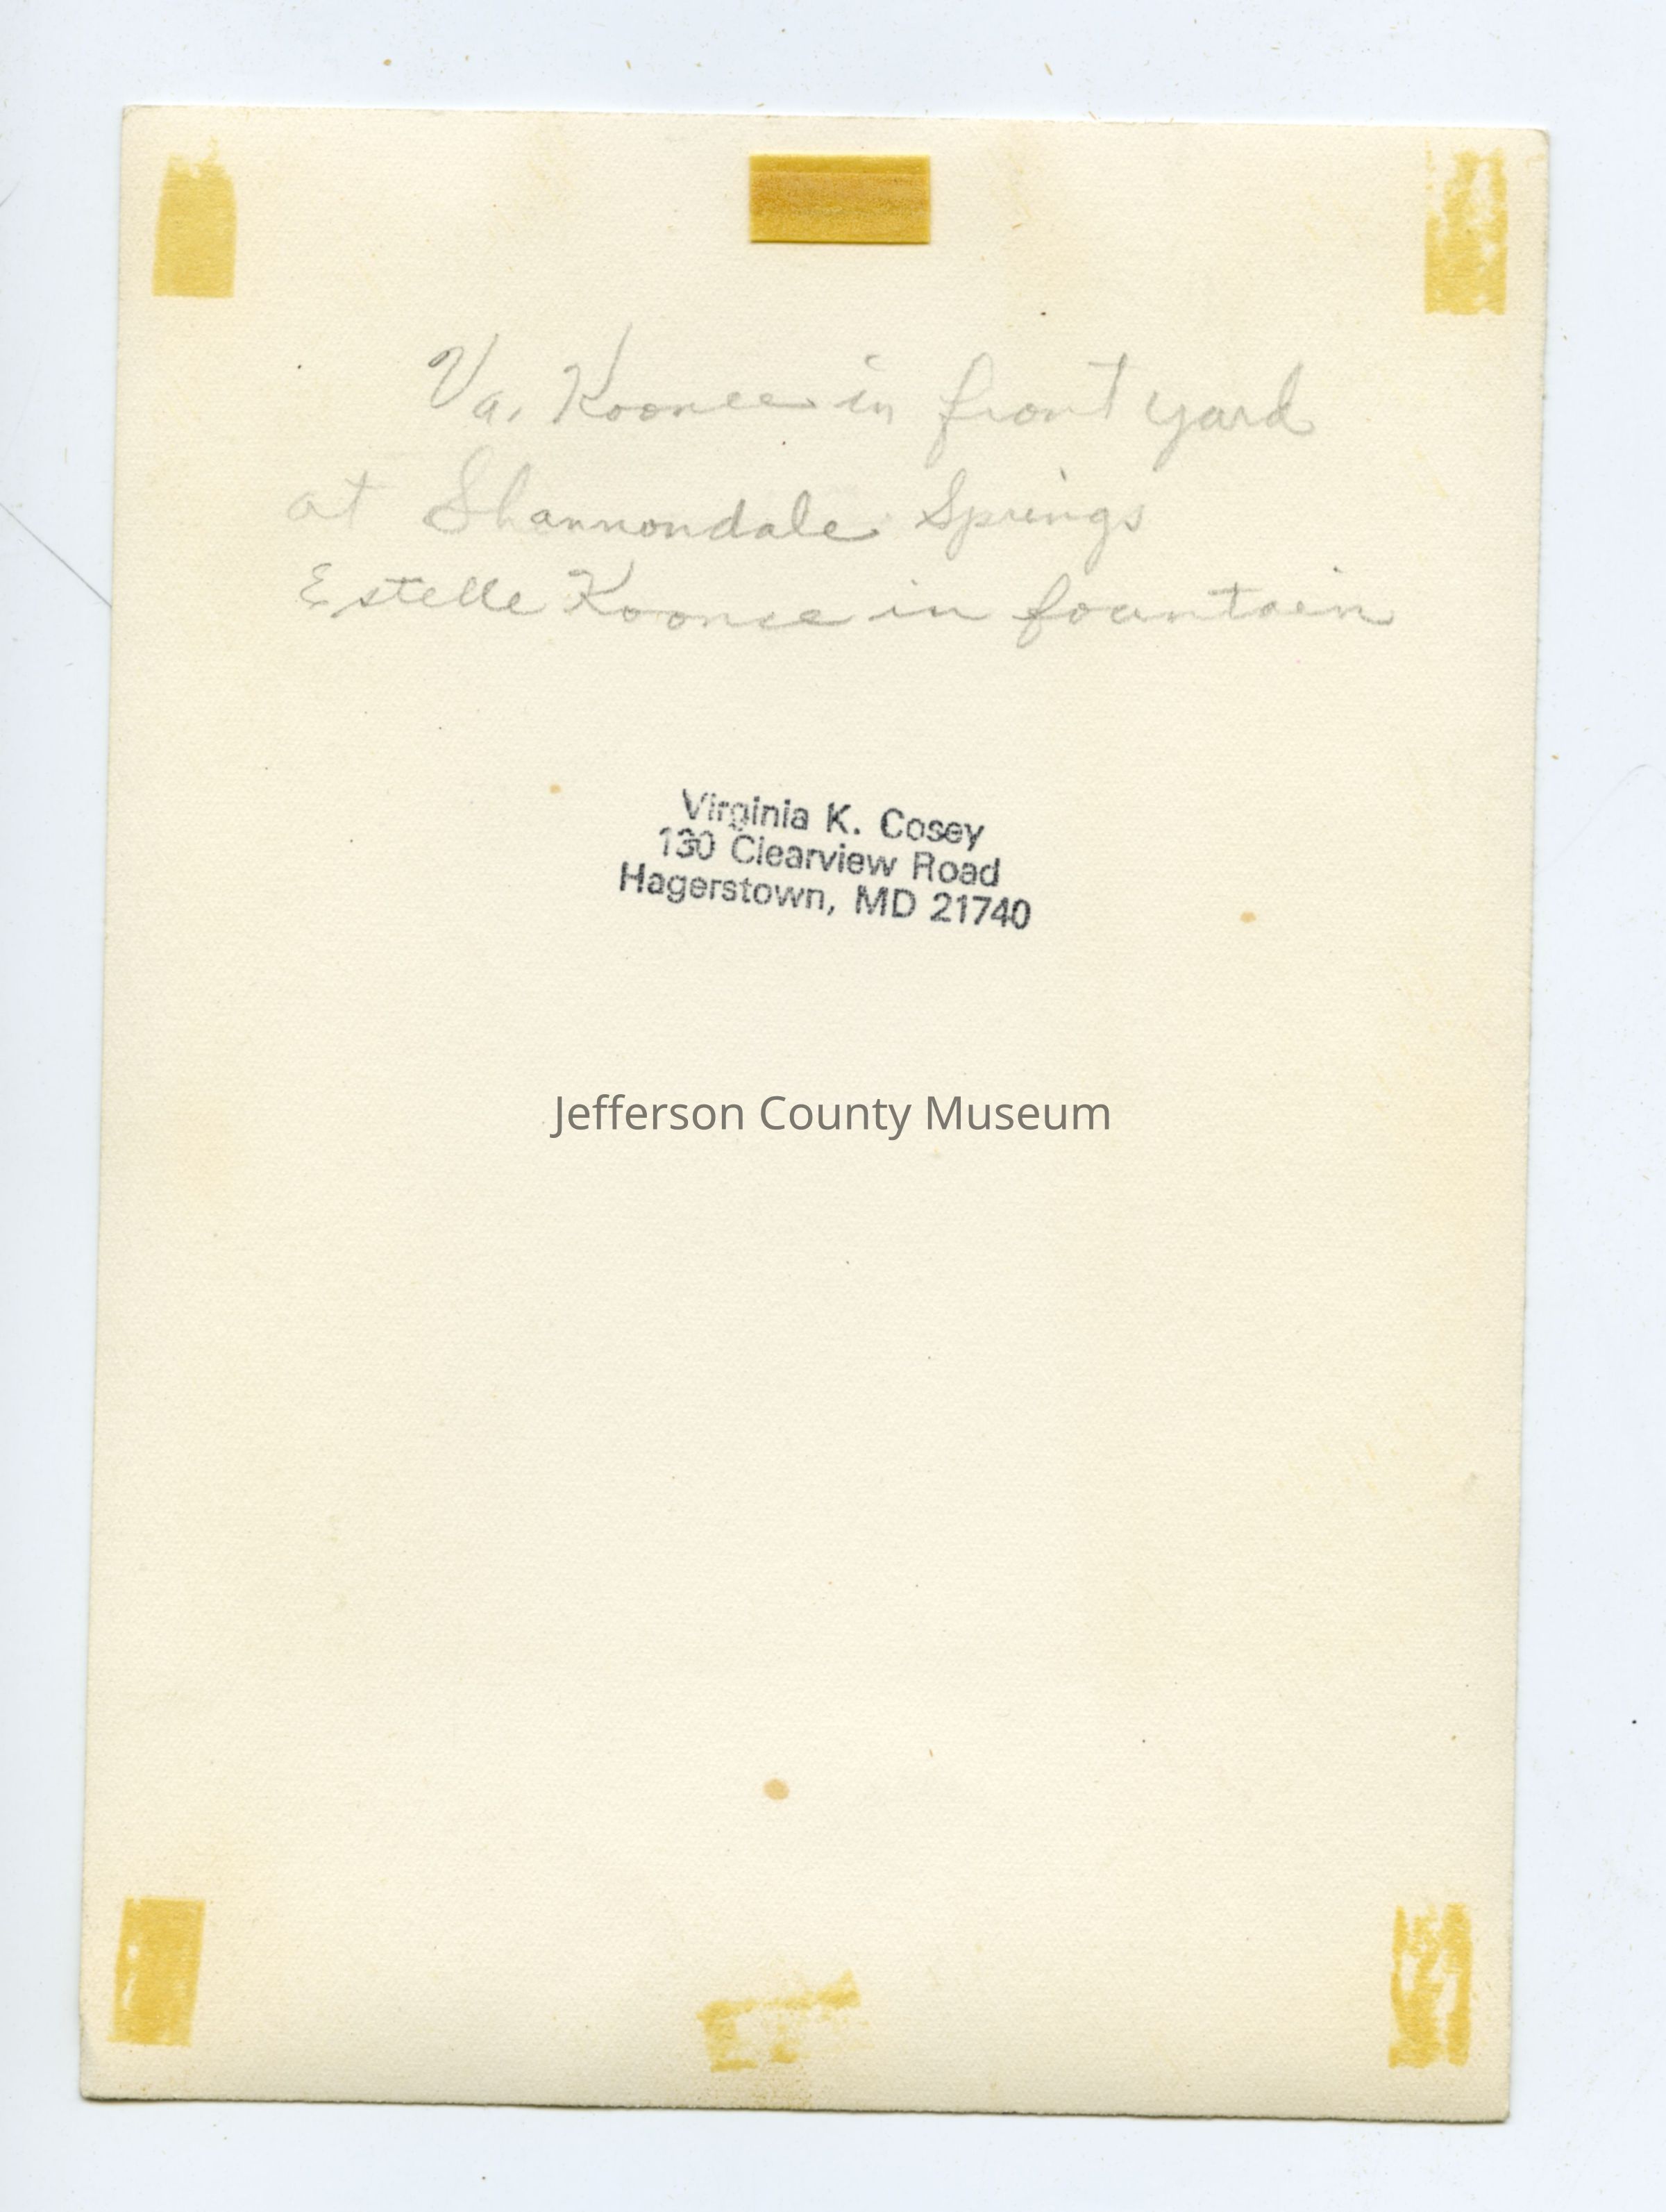 Va. Koonce in front yard
at Shannondale Springs
Estelle Koonce in fountain
Virginia K. Cosey
130 Clearview Road
Hagerstown, MD 21740
Jefferson County Museum